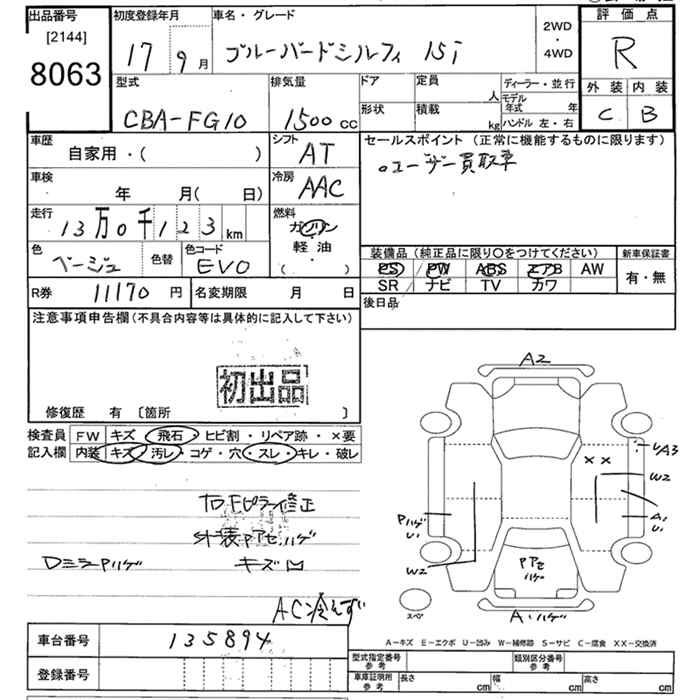 出品番号
[2144]
8063
初度登録年月
17 9月
車名・グレード
ブルーバードシルフィ 15i
2WD
・
4WD
評価点
R
外装 内装
C B
型式
CBA-FG10
排気量
1500cc
ドア
形状
定員
人
積載
kg
ディーラー・並行
モデル年式 年
ハンドル 左・右
車歴
自家用・( )
シフト
AT
セールスポイント (正常に機能するものに限ります)
。ユーザー買取車
車検
年 月( 日)
冷房
AAC
走行
13万0千123km
燃料
ガソリン
軽油
( )
色
ベージュ
色替
色コード
EV0
装備品 (純正品に限り〇をつけてください)
PS PW ABS エアB AW
SR ナビ TV カワ
新車保証書
有・無
R券 11170円
名変期限 月 日
後日品
注意事項申告欄 (不具合内容等は具体的に記入して下さい)
初出品
修復歴 有 〔箇所 〕
検査員記入欄
FW キズ・飛石・ヒビ割・リペア跡・×要
内装 キズ・汚レ・コゲ・穴・スレ・キレ・破レ
外装Pアセハゲ
DミラーPハゲ キズ凹
AC冷えず
A2
UA3
××
W2
A1
U1
Pハゲ
U1
W2
Pアセ
ハゲ
スペア
A・ハゲ
A-キズ E-エクボ U-凹み W-補修跡 S-サビ C-腐食 XX-交換済
車台番号 135894
登録番号
型式指定番号 参考
類別区分番号 参考
車庫証明所 参考
長さ cm
幅 cm
高さ cm